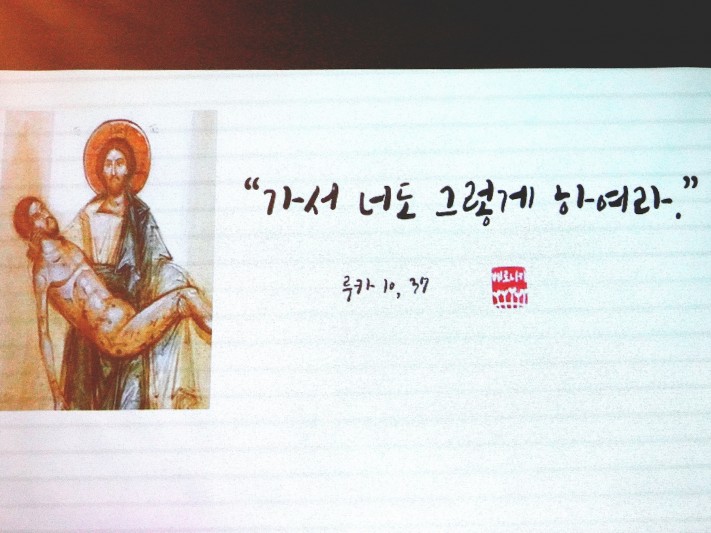 “가서 너도 그렇게 하여라.”
루카 10, 37